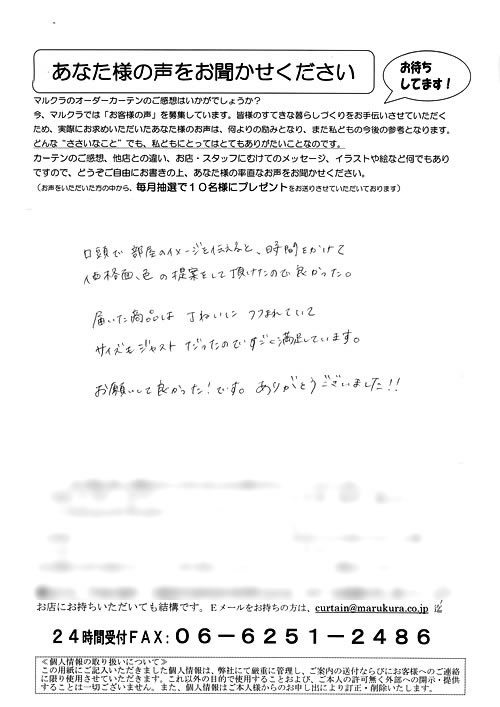 あなた様の声をお聞かせください
お待ち
してます！
マルクラのオーダーカーテンのご感想はいかがでしょうか？
今、マルクラでは「お客様の声」を募集しています。皆様のすてきな暮らしづくりをお手伝いさせていただく
ため、実際にお求めいただいたあなた様のお声は、何よりの励みとなり、また私どもの今後の参考となります。
どんな“ささいなこと”でも、私どもにとってはとてもありがたいことなのです。
カーテンのご感想、他店との違い、お店・スタッフにむけてのメッセージ、イラストや絵など何でもあり
ですので、どうぞご自由にお書きの上、あなた様の率直なお声をお聞かせください。
（お声をいただいた方の中から、毎月抽選で１０名様にプレゼントをお送りさせていただいております）
口頭で部屋のイメージを伝えると、時間をかけて
価格面、色の提案をして頂けたので良かった。
届いた商品は丁ねいにつつまれていて
サイズもジャストだったのですごく満足しています。
お願いして良かった！です。ありがとうございました!!
お店にお持ちいただいても結構です。Ｅメールをお持ちの方は、curtain@marukura.co.jp 迄
２４時間受付FAX:０６－６２５１－２４８６
≪個人情報の取り扱いについて≫
この用紙にご記入いただきました個人情報は、弊社にて厳重に管理し、ご案内の送付ならびにお客様へのご連絡
に限り使用させていただきます。これ以外の目的で使用することおよび、ご本人の許可無く外部への開示・提供
することは一切ございません。また、個人情報はご本人様からのお申し出により訂正・削除いたします。